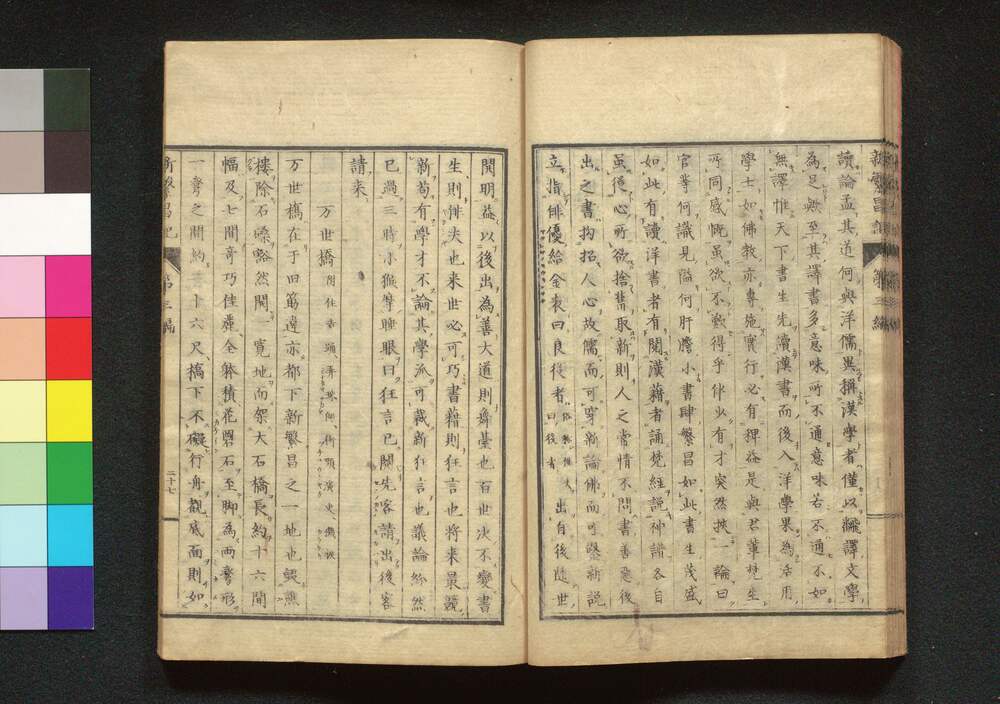 讀論孟其道何與洋儒異稱漢學者僅以飜譯文學
為足無至其譯書多意味所不通意味若不通不如
無譯惟天下書生先讀漢書而後入洋學果為活用
學士如佛教亦專施實行必有裨益是與君輩梵生
所同感慨雖欲不歎得乎伴少有才突然挾一論曰
官等何識見隘何肝膽小書肆繁昌如此書生茂盛
如此有讀洋書者有閱漢籍者誦梵經説神譜各自
雖從心所欲捨舊取新則人之常情不問書善惡後
出之書拘招人心故儒而可穿新論佛而可鑿新説
立指俳優給金表曰良役者 出自後陸世
開明益以後出為善大道則舞臺也百世次不變書
生則俳夫也来世必可巧書藉則狂言也将来最競
新苟有學才不論其學派可裁新狂言也議論紛然
已過三時小猴摩睡眼曰狂言已闋先客請出後客
請来
万世橋
万世橋在于旧筋違亦都下新繁昌之一地也毀譙
樓除石礫豁然開一寛地而架大石橋長約十六間
幅及七間奇巧佳麗全躰積花崗石至脚為両甕形
一甕之間約三十六尺橋下不礙行舟觀底面則如
新繁昌記 第三編 二十七